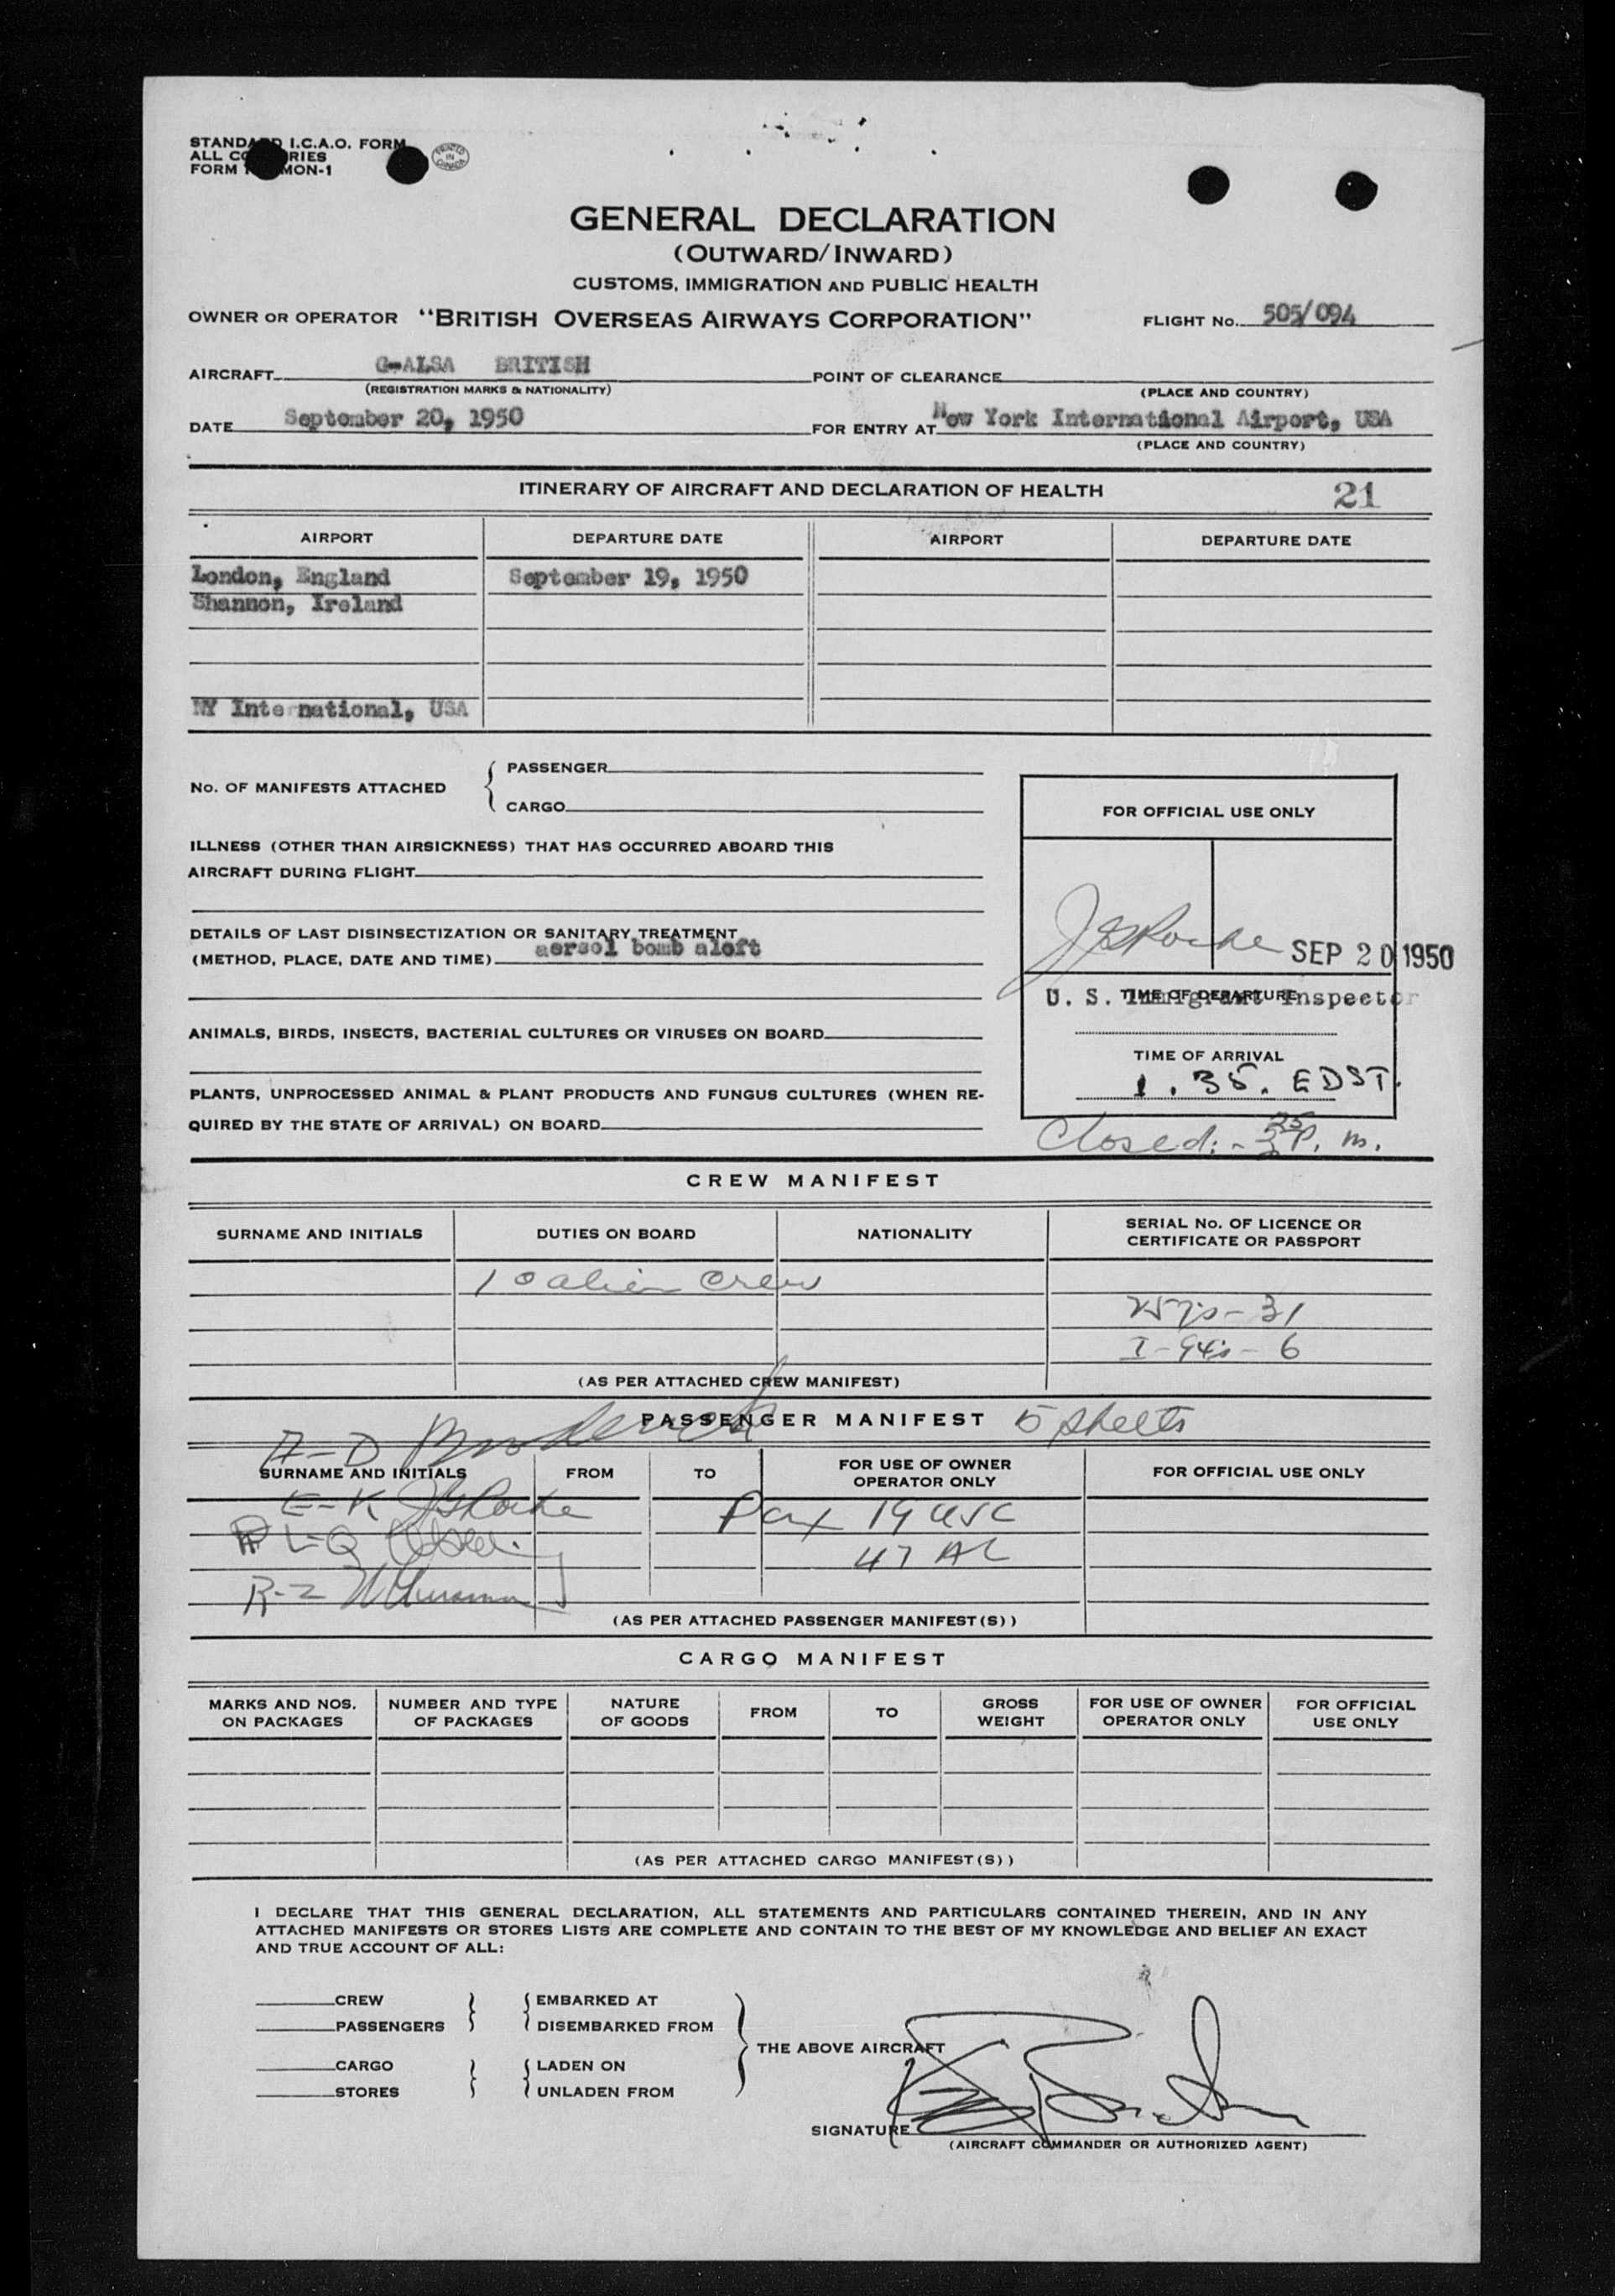 STANDARD I.C.A.O. FORM
ALL COUNTRIES
FORM MON-1
PRINTED IN CANADA
GENERAL DECLARATION
(OUTWARD/INWARD)
CUSTOMS, IMMIGRATION AND PUBLIC HEALTH
OWNER OR OPERATOR "BRITISH OVERSEAS AIRWAYS CORPORATION" FLIGHT No. 505/094
AIRCRAFT G-ALSA BRITISH POINT OF CLEARANCE
(REGISTRATION MARKS & NATIONALITY) (PLACE AND COUNTRY)
DATE September 20, 1950 FOR ENTRY AT New York International Airport, USA
(PLACE AND COUNTRY)
ITINERARY OF AIRCRAFT AND DECLARATION OF HEALTH 21
AIRPORT DEPARTURE DATE AIRPORT DEPARTURE DATE
London, England September 19, 1950
Shannon, Ireland
NY International, USA
No. OF MANIFESTS ATTACHED { PASSENGER
CARGO
FOR OFFICIAL USE ONLY
ILLNESS (OTHER THAN AIRSICKNESS) THAT HAS OCCURRED ABOARD THIS
AIRCRAFT DURING FLIGHT
DETAILS OF LAST DISINSECTIZATION OR SANITARY TREATMENT
(METHOD, PLACE, DATE AND TIME) aersol bomb aloft
JGRocke SEP 20 1950
U. S. Immigrant Inspector
TIME OF DEPARTURE
ANIMALS, BIRDS, INSECTS, BACTERIAL CULTURES OR VIRUSES ON BOARD
TIME OF ARRIVAL
1.35. EDST.
PLANTS, UNPROCESSED ANIMAL & PLANT PRODUCTS AND FUNGUS CULTURES (WHEN RE-
QUIRED BY THE STATE OF ARRIVAL) ON BOARD
Closed:- 3 25 P. m.
CREW MANIFEST
SURNAME AND INITIALS DUTIES ON BOARD NATIONALITY SERIAL No. OF LICENCE OR
CERTIFICATE OR PASSPORT
10 alien crew
257's - 31
I-94's - 6
(AS PER ATTACHED CREW MANIFEST)
PASSENGER MANIFEST 5 sheets
A-D Broderick
SURNAME AND INITIALS FROM TO FOR USE OF OWNER
OPERATOR ONLY FOR OFFICIAL USE ONLY
E-K JGRocke Pax 19 USC
L-Q
47 AL
R-Z
(AS PER ATTACHED PASSENGER MANIFEST(S))
CARGO MANIFEST
MARKS AND NOS.
ON PACKAGES NUMBER AND TYPE
OF PACKAGES NATURE
OF GOODS FROM TO GROSS
WEIGHT FOR USE OF OWNER
OPERATOR ONLY FOR OFFICIAL
USE ONLY
(AS PER ATTACHED CARGO MANIFEST(S))
I DECLARE THAT THIS GENERAL DECLARATION, ALL STATEMENTS AND PARTICULARS CONTAINED THEREIN, AND IN ANY
ATTACHED MANIFESTS OR STORES LISTS ARE COMPLETE AND CONTAIN TO THE BEST OF MY KNOWLEDGE AND BELIEF AN EXACT
AND TRUE ACCOUNT OF ALL:
CREW } { EMBARKED AT
PASSENGERS } { DISEMBARKED FROM
THE ABOVE AIRCRAFT
CARGO } { LADEN ON
STORES } { UNLADEN FROM
SIGNATURE
(AIRCRAFT COMMANDER OR AUTHORIZED AGENT)